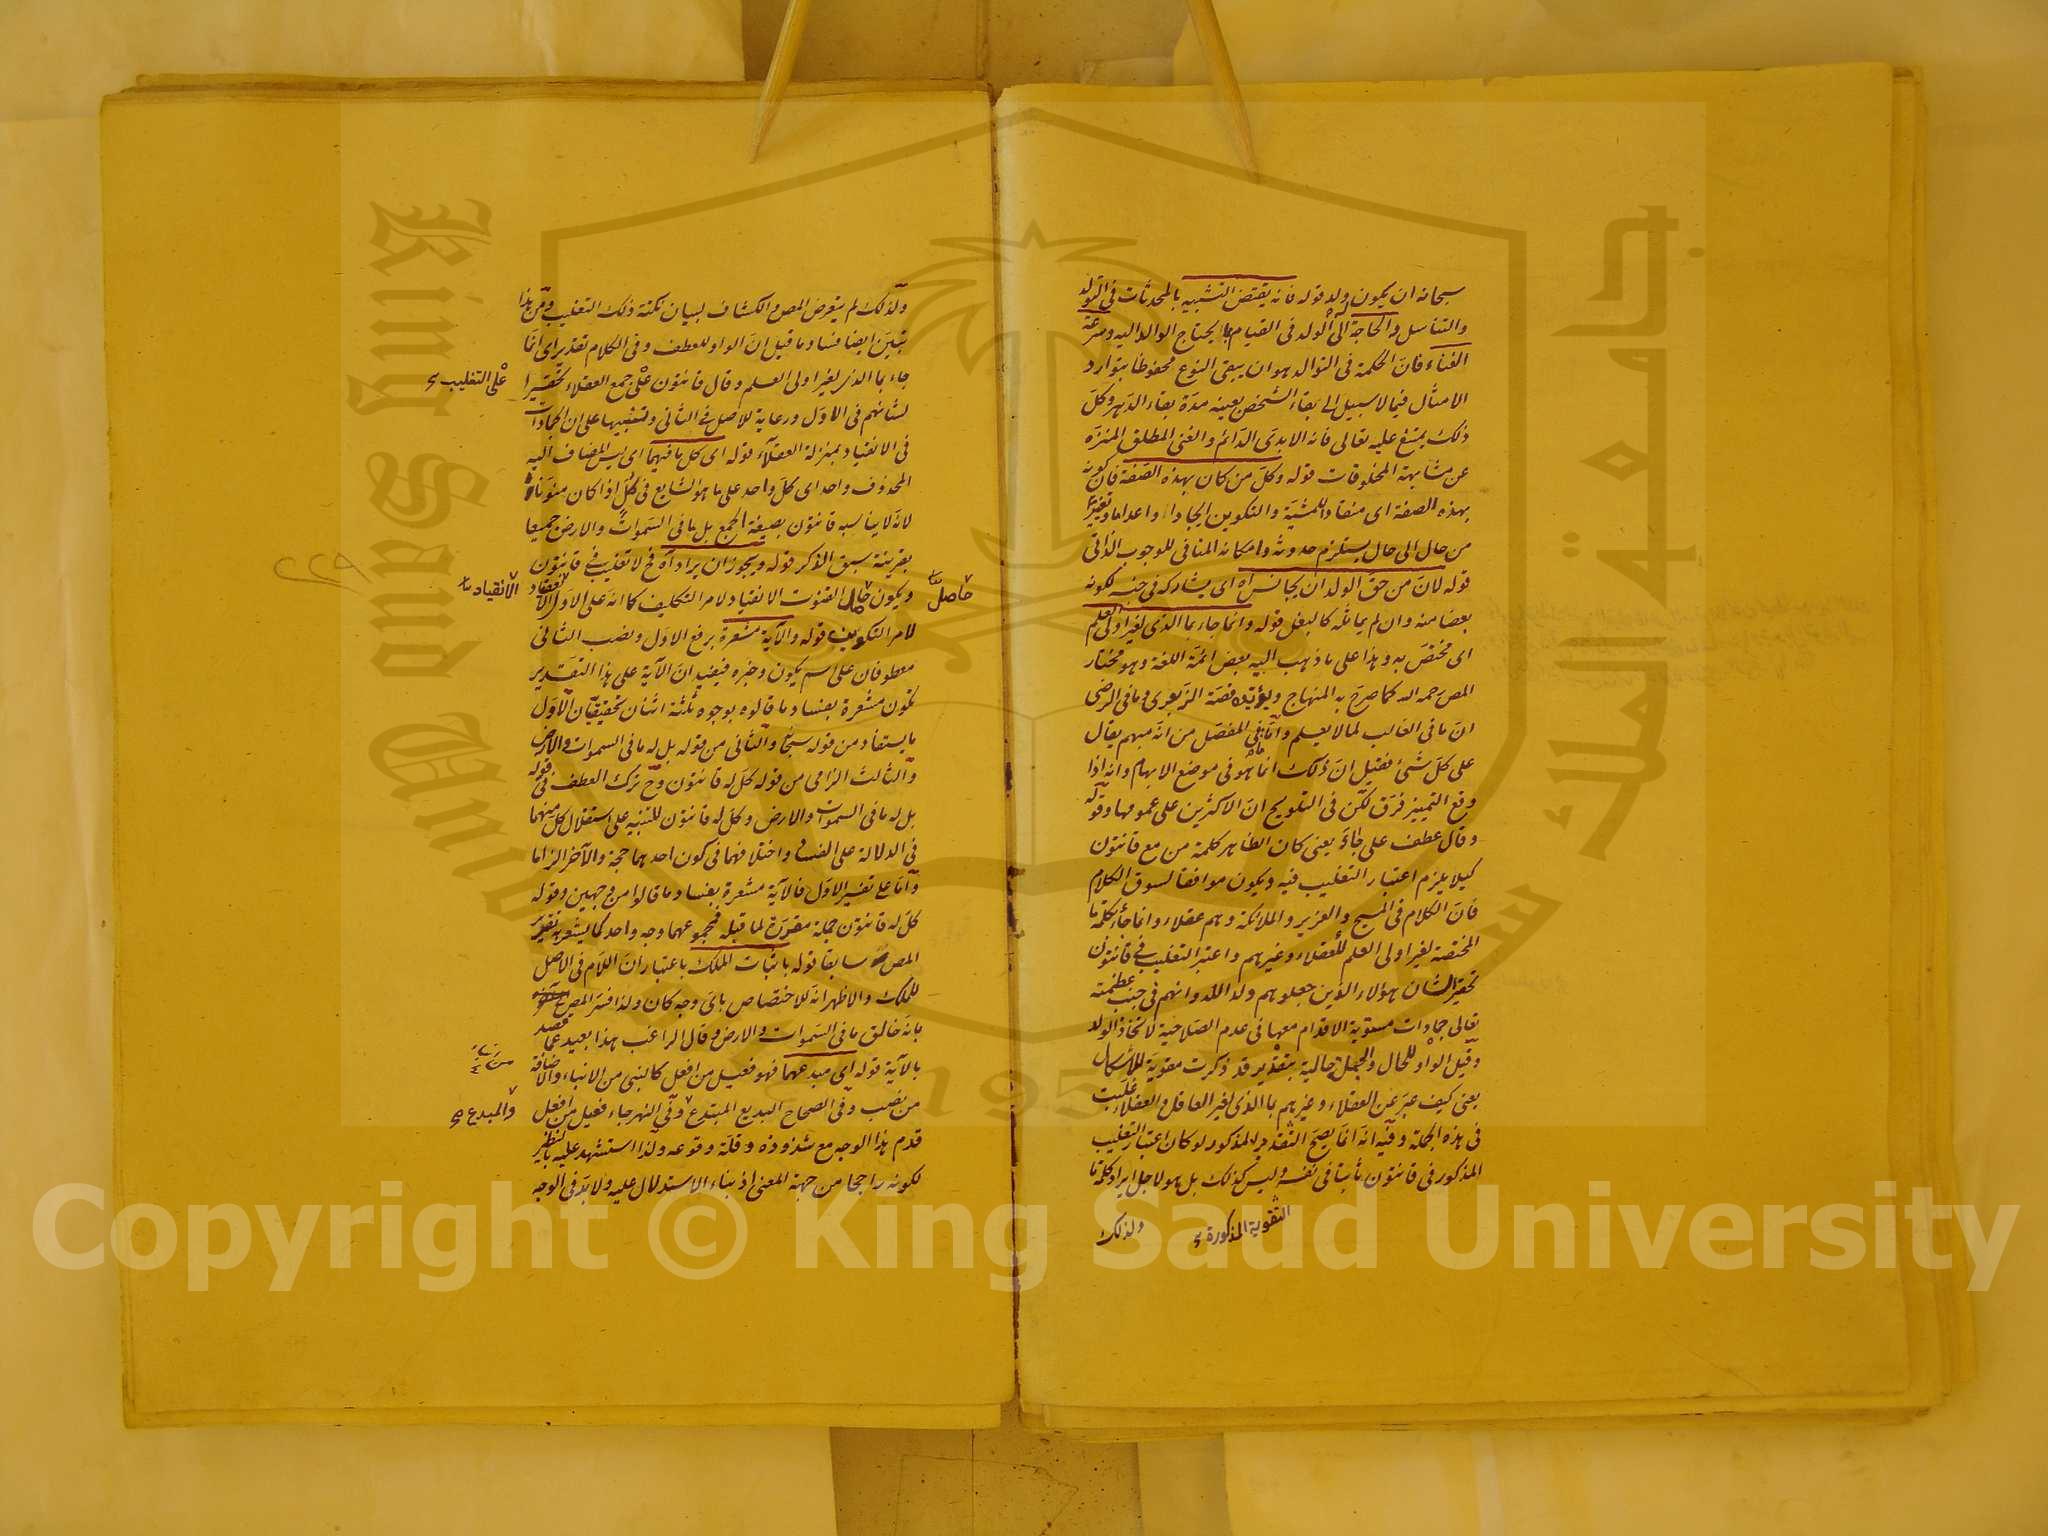 سبحانه ان يكون ولد قوله فانه يقتضى التشبيه بالمحدثات فى التولد
والتناسل والحاجة الى الولد فى القيام بما يحتاج الوالد اليه وسرعة
الفناء فانّ الحكمة فى التوالد هو ان يبقى النوع محفوظا بتوارد
الامثال فيما لا سبيل الى بقاء الشخص بعينه مدّة بقاء الدهر وكلّ
ذلك يمتنع عليه تعالى فانه الابدى الدائم والغنى المطلق المنزّه
عن مشابهة المخلوقات قوله وكلّ من كان بهذه الصفة فان كونه
بهذه الصفة اى منقادا للمشيّة والتكوين ايجادا واعداما وتغييرا
من حال الى حال يستلزم حدوثه وامكانه المنافى للوجوب الذاتى
قوله لانّ من حقّ الولد ان يجانس اى يشاركه فى جنسه لكونه
بعضا منه وان لم يماثله كالبغل قوله وانما جاء بما الذى لغير اولى العلم
اى مختصّ به وهذا على ما ذهب اليه بعض ائمّة اللغة وهو مختار
المص رحمه الله كما صرّح به المنهاج ويؤيّده قصّة الزبعرى وما فى الرضى
انّ ما فى الغالب لما لا يعلم وامّا فى المفصّل من انّه مبهم يقال
على كلّ شئ فقيل انّ ذلك انما هو فى موضع الابهام وانه اذا
وقع التمييز فرّق لكن فى التلويح انّ الاكثرين على عمومها وقوله
وقال عطف على جاء يعنى كان الظاهر كلمة من مع قانتون
كيلا يلزم اعتبار التغليب فيه ويكون موافقا لسوق الكلام
فانّ الكلام فى المسيح والعزير والملائكة وهم عقلاء وانما جاء بكلمة ما
المختصة لغير اولى العلم للعقلاء وغيرهم واعتبر التغليب فى قانتون
تحقيرا لشان هؤلاء الذين جعلوهم ولد الله وانهم فى جنب عظمته
تعالى جمادات مستوية الاقدام معها فى عدم الصلاحية لاتخاذ الولد
وقيل الواو للحال والجملة حالية بتقدير قد ذكرت مقوية للاشكال
يعنى كيف عبّر عن العقلاء وغيرهم بما الذى لغير العاقل والعقلاء غلّبت
فى هذه الجملة وفيه انه انما يصحّ التقدير المذكور لو كان اعتبار التغليب
المذكور فى قانتون ثابتا فى نفسه وليس كذلك بل هو لاجل ايراد كلمة ما
التقوية المذكورة
ولذلك
ولذلك لم يتعرض المص والكشاف لبيان نكتة ذلك التغليب ومن هذا
تبيّن ايضا فساد ما قيل انّ الواو للعطف وفى الكلام تقدير اى انما
جاء بما الذى لغير اولى العلم وقال قانتون على جمع العقلاء تحقيرا
على التغليب
لشانهم فى الاول ورعاية للاصل فى الثانى وتنبيها على ان الجمادات
فى الانقياد بمنزلة العقلاء قوله اى كل ما فيهما اى ليس المضاف اليه
المحذوف واحد اى كلّ واحد على ما هو الشايع فى كلّ اذا كان منوّنا
لانه لا يناسبه قانتون بصيغة الجمع بل ما فى السموات والارض جميعا
بقرينة سبق الذكر قوله ويجوز ان يراد فح لا تغليب فى قانتون
ويكون القنوت الانقياد لامر التكليف كما انه على الاول
حاصل
الانقياد
لامر التكوين قوله والآية مشعرة برفع الاول ونصب الثانى
معطوفان على اسم يكون وخبره فيفيد انّ الآية على هذا التقدير
تكون مشعرة بفساد ما قالوه بوجوه ثلثة اثنان تحقيقيّان الاول
ما يستفاد من قوله سبحانه والثانى من قوله بل له ما فى السموات والارض
والثالث الزامى من قوله كل له قانتون وح ترك العطف فى قوله
بل له ما فى السموات والارض وكلّ له قانتون للتنبيه على استقلال كل منهما
فى الدلالة على الفساد واختلافهما فى كون احدهما حجة والآخر الزاما
وامّا على تفسير الاول فالآية مشعرة بفساد ما قالوا من وجهين وقوله
كلّ له قانتون جملة مقررة لما قبله فمجموعهما وجه واحد كما يشعر به تقرير
المص سابقا قوله باثبات الملك باعتبار انّ اللام فى الاصل
للملك والاظهر انه للاختصاص باىّ وجه كان ولذا فسّر المص
بانه خالق ما فى السموات والارض وقال الراغب هذا بعيد عما قصد
بالآية قوله اى مبدعهما فهو فعيل من افعل كالنبى من الانباء والاضافة
من نصب وفى الصحاح البديع المبتدع وفى النهر جاء فعيل من افعل
والمبدع
قدم هذا الوجه مع شذوذه وقلّة وقوعه ولذا استشهد عليه بالنظير
لكونه راجحا من جهة المعنى اذ بناء الاستدلال عليه ولا بدّ فى الوجه
٢٢٩
Copyright © King Saud University
King Saud University
جامعة الملك سعود
1957